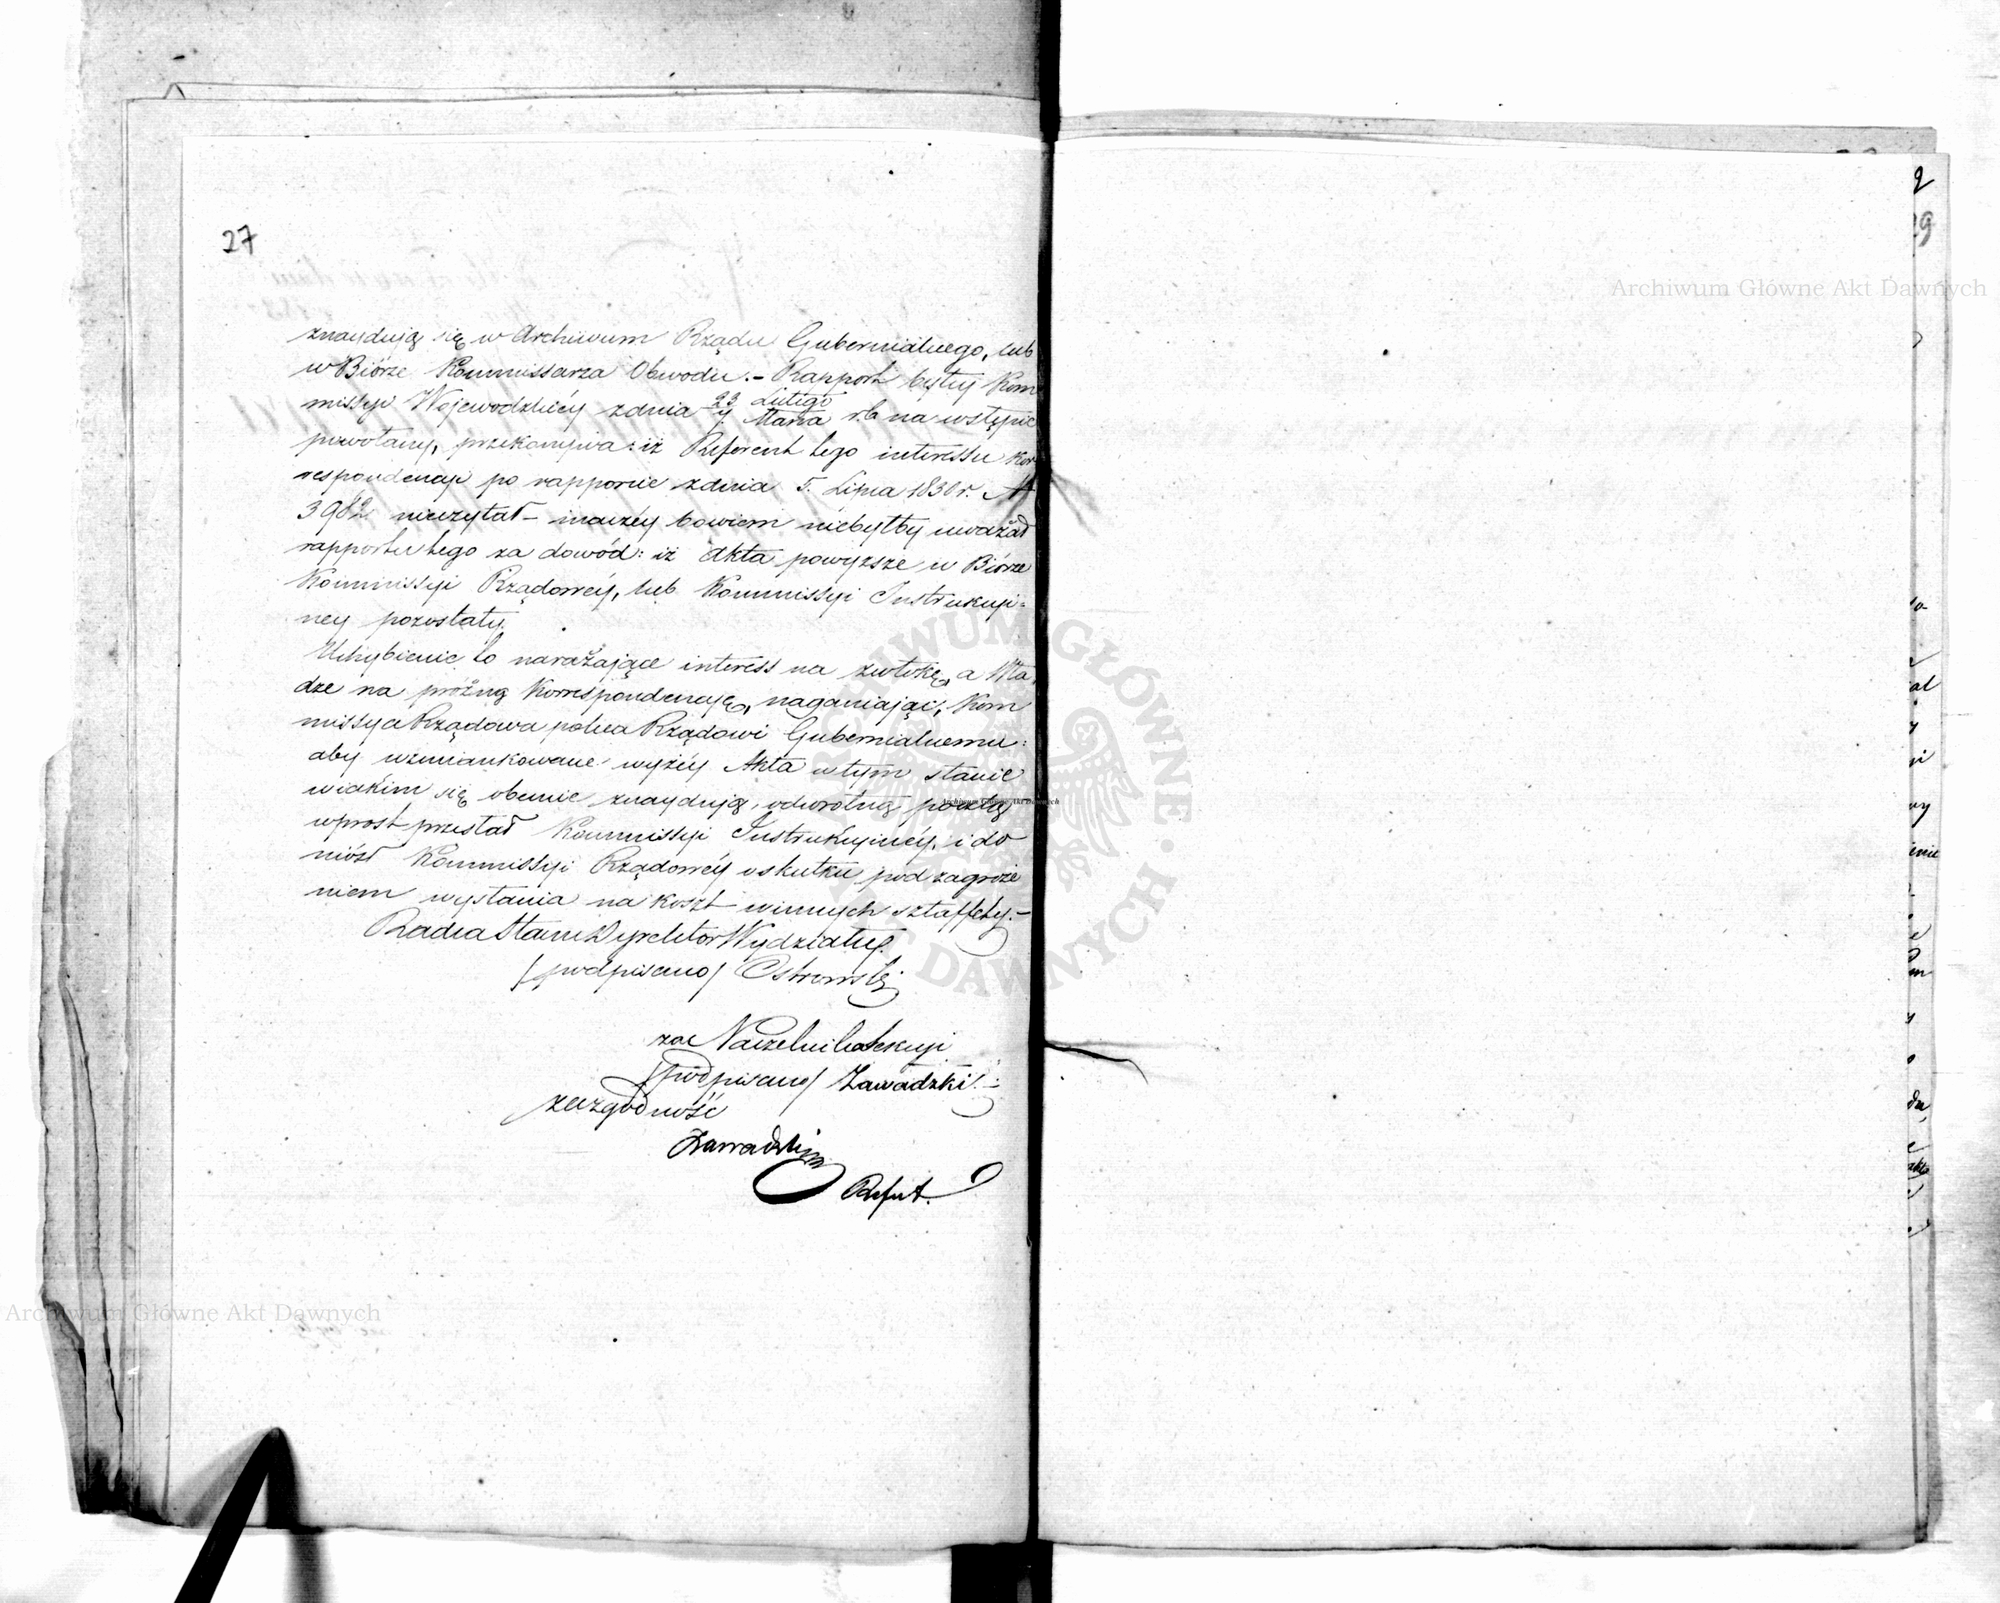 27
znayduią się w Archiwum Rządu Gubernialnego, lub
w Biórze Kommissarza Obwodu. – Rapport byłey Kom
missyi Wojewodzkiéy z dnia 23 Lutego / 7. Marca r. b. na wstępie
powołany, przekonywa: iż Referent tego interessu kor
respondencyi po rapporcie z dnia 5. Lipca 1830 r. N
3982 nieczytał – inaczéy bowiem niebyłby uważał
rapportu tego za dowód: iż Akta powyższe w Biórze
Kommissyi Rządowéy, lub Kommissyi Instrukcyi=
ney pozostały.
Uchybienie to narażaiące interess na zwłokę, a Wła
dze na próżną Korrespondencyę, naganiaiąc, Kom
missya Rządowa poleca Rządowi Gubernialnemu:
aby wzmiankowane wyżéy Akta w tym stanie
w iakim się obecnie znayduią, odwrotną pocztą
wprost przesłał Kommissyi Instrukcyinéy, i do
niósł Kommissyi Rządowéy o skutku pod zagroże
niem wysłania na koszt winnych sztaffety. –
Radca Stanu Dyrektor Wydziału
/podpisano/ Ostrowski
za Naczelnika Sekcyi
/podpisano/ Zawadzki
za zgodność
Zawadzki
Refnt.
Archiwum Główne Akt Dawnych
ARCHIWUM GŁÓWNE AKT DAWNYCH
Archiwum Główne Akt Dawnych
Archiwum Główne Akt Dawnych